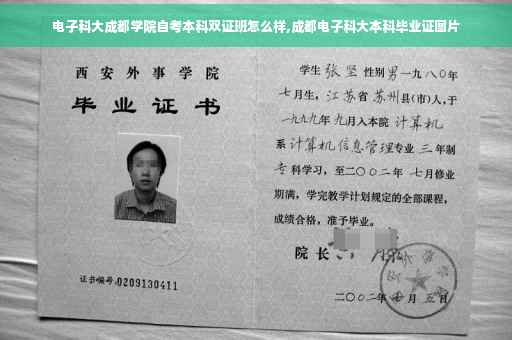 电子科大成都学院自考本科双证班怎么样,成都电子科大本科毕业证图片
西安外事学院
毕业证书
证书编号:0209130411
学生 张坚 性别男一九八〇年
七月生,江苏省 苏州县(市)人,于
一九九九年九月入本院 计算机
系 计算机信息管理专业 三 年制
专 科学习,至二〇〇二年 七月修业
期满,学完教学计划规定的全部课程,
成绩合格,准予毕业。
院 长
二〇〇二年 月 五 日